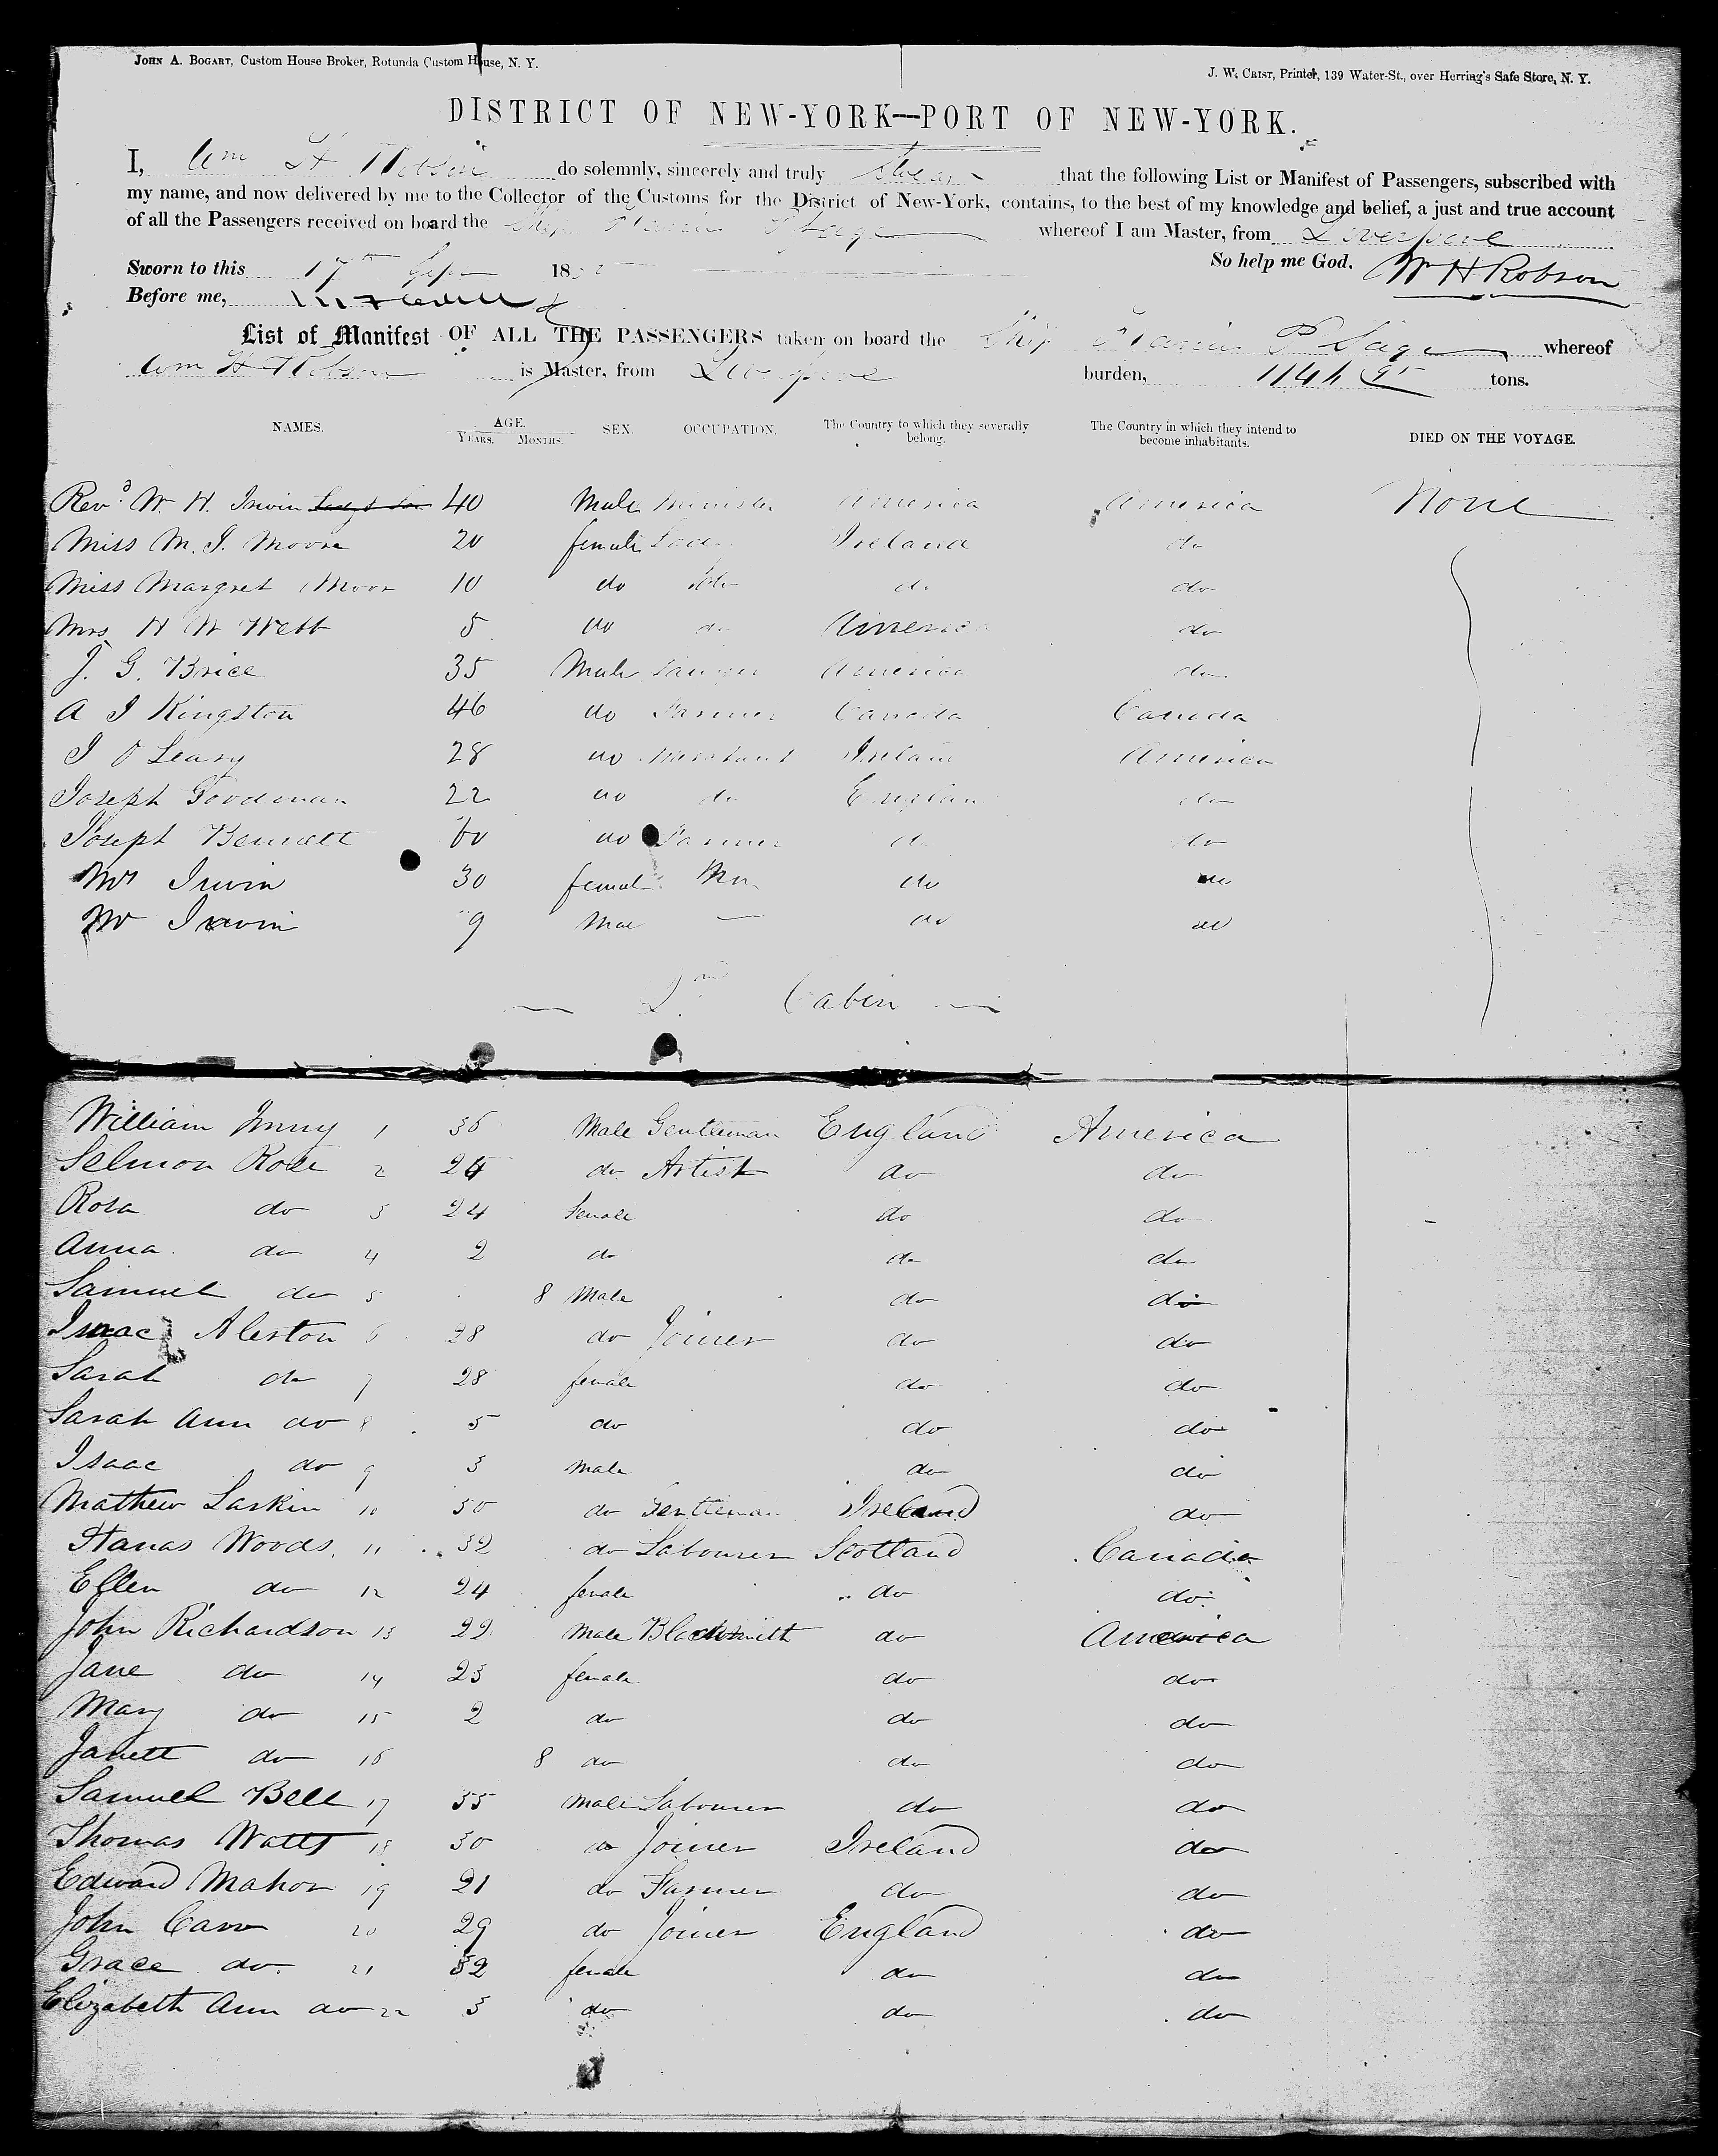 JOHN A. BOGART, Custom House Broker, Rotunda Custom House, N. Y.
J. W. CRIST, Printer, 139 Water-St., over Herring's Safe Store, N. Y.
DISTRICT OF NEW-YORK—PORT OF NEW-YORK.
I, Wm H Robson do solemnly, sincerely and truly swear that the following List or Manifest of Passengers, subscribed with
my name, and now delivered by me to the Collector of the Customs for the District of New-York, contains, to the best of my knowledge and belief, a just and true account
of all the Passengers received on board the Ship Sage whereof I am Master, from Liverpool
Sworn to this 17th 18 So help me God. Wm H Robson
Before me,
List of Manifest OF ALL THE PASSENGERS taken on board the Ship P Sage whereof
Wm H Robson is Master, from Liverpool burden, tons.
NAMES. AGE. SEX. OCCUPATION. The Country to which they severally belong. The Country in which they intend to become inhabitants. DIED ON THE VOYAGE.
YEARS. MONTHS.
Revd W. H. Irwin 40 Male Minister America America None
Miss M. J. Moore 20 female Ireland do
Miss Margret Moor 10 do do do do
Mrs H W Webb 5 do do America do
J. G. Brice 35 Male America do
A J Kingston 46 do Farmer Canada Canada
J O Leary 28 do Merchant Ireland America
Joseph Goodman 22 do do England do
Joseph Bennett 60 do Farmer do do
Mrs Irwin 30 female do do
Mr Irwin 9 Male — do do
— 2nd Cabin —
William 1 36 Male Gentleman England America
Selmon Rose 2 24 do Artist do do
Rosa do 3 24 female do do
Anna do 4 2 do do do
Samuel do 5 8 Male do do
Isaac Aleston 6 28 do Joiner do do
Sarah do 7 28 female do do
Sarah Ann do 8 5 do do do
Isaac do 9 3 male do do
Mathew Larkin 10 50 do Gentleman Ireland do
Woods 11 32 do Labourer Scotland Canada
Ellen do 12 24 female do do
John Richardson 13 22 Male Blacksmith do America
Jane do 14 23 female do do
Mary do 15 2 do do do
Janett do 16 8 do do do
Samuel Bell 17 35 male Labourer do do
Thomas Watts 18 30 do Joiner Ireland do
Edward Mahon 19 21 do Farmer do do
John Carr 20 29 do Joiner England do
Grace do 21 32 female do do
Elizabeth Ann do 22 3 do do do